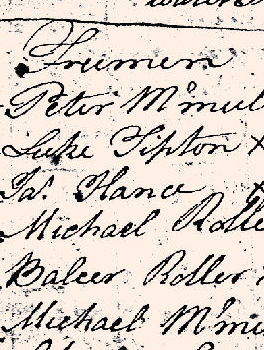 Freemen
Peter
Luke Tipton
Jas. Hance
Michael Roller
Balcer Roller
Michael